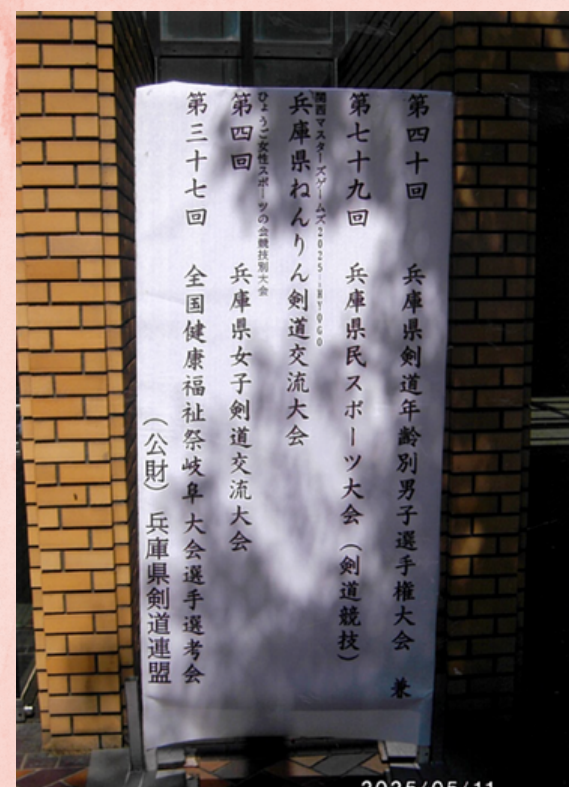 第四十回 兵庫県剣道年齢別男子選手権大会 兼
第七十九回 兵庫県民スポーツ大会（剣道競技）
関西マスターズゲームズ2025 in HYOGO
兵庫県ねんりん剣道交流大会
ひょうご女性スポーツの会競技別大会
第四回 兵庫県女子剣道交流大会
第三十七回 全国健康福祉祭岐阜大会選手選考会
（公財）兵庫県剣道連盟
2025/05/11